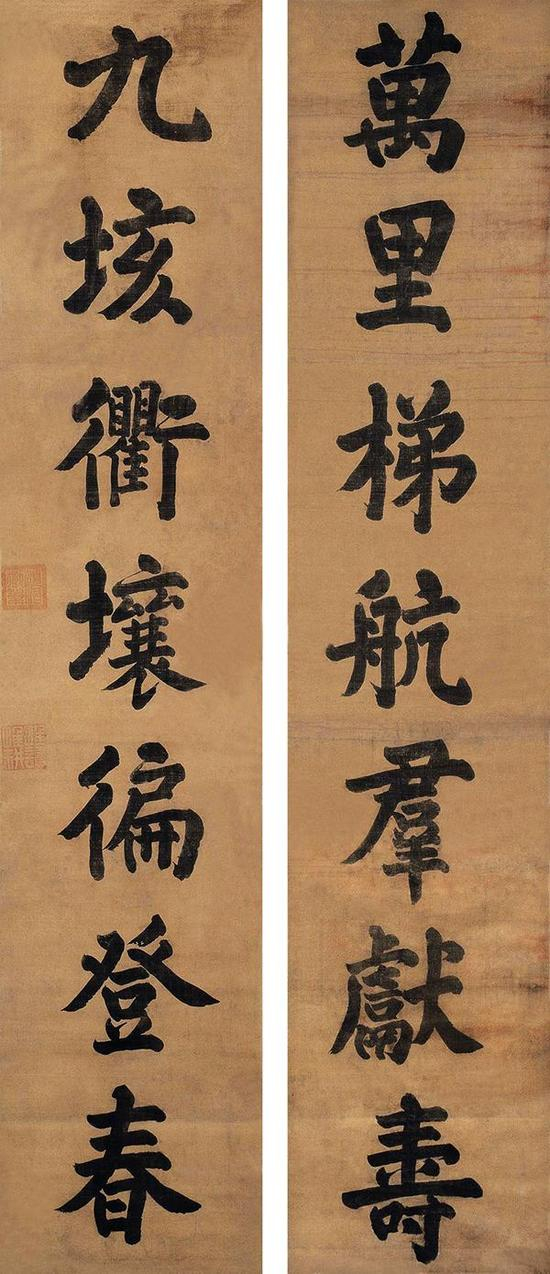 萬里梯航羣獻壽
九垓衢壤徧登春